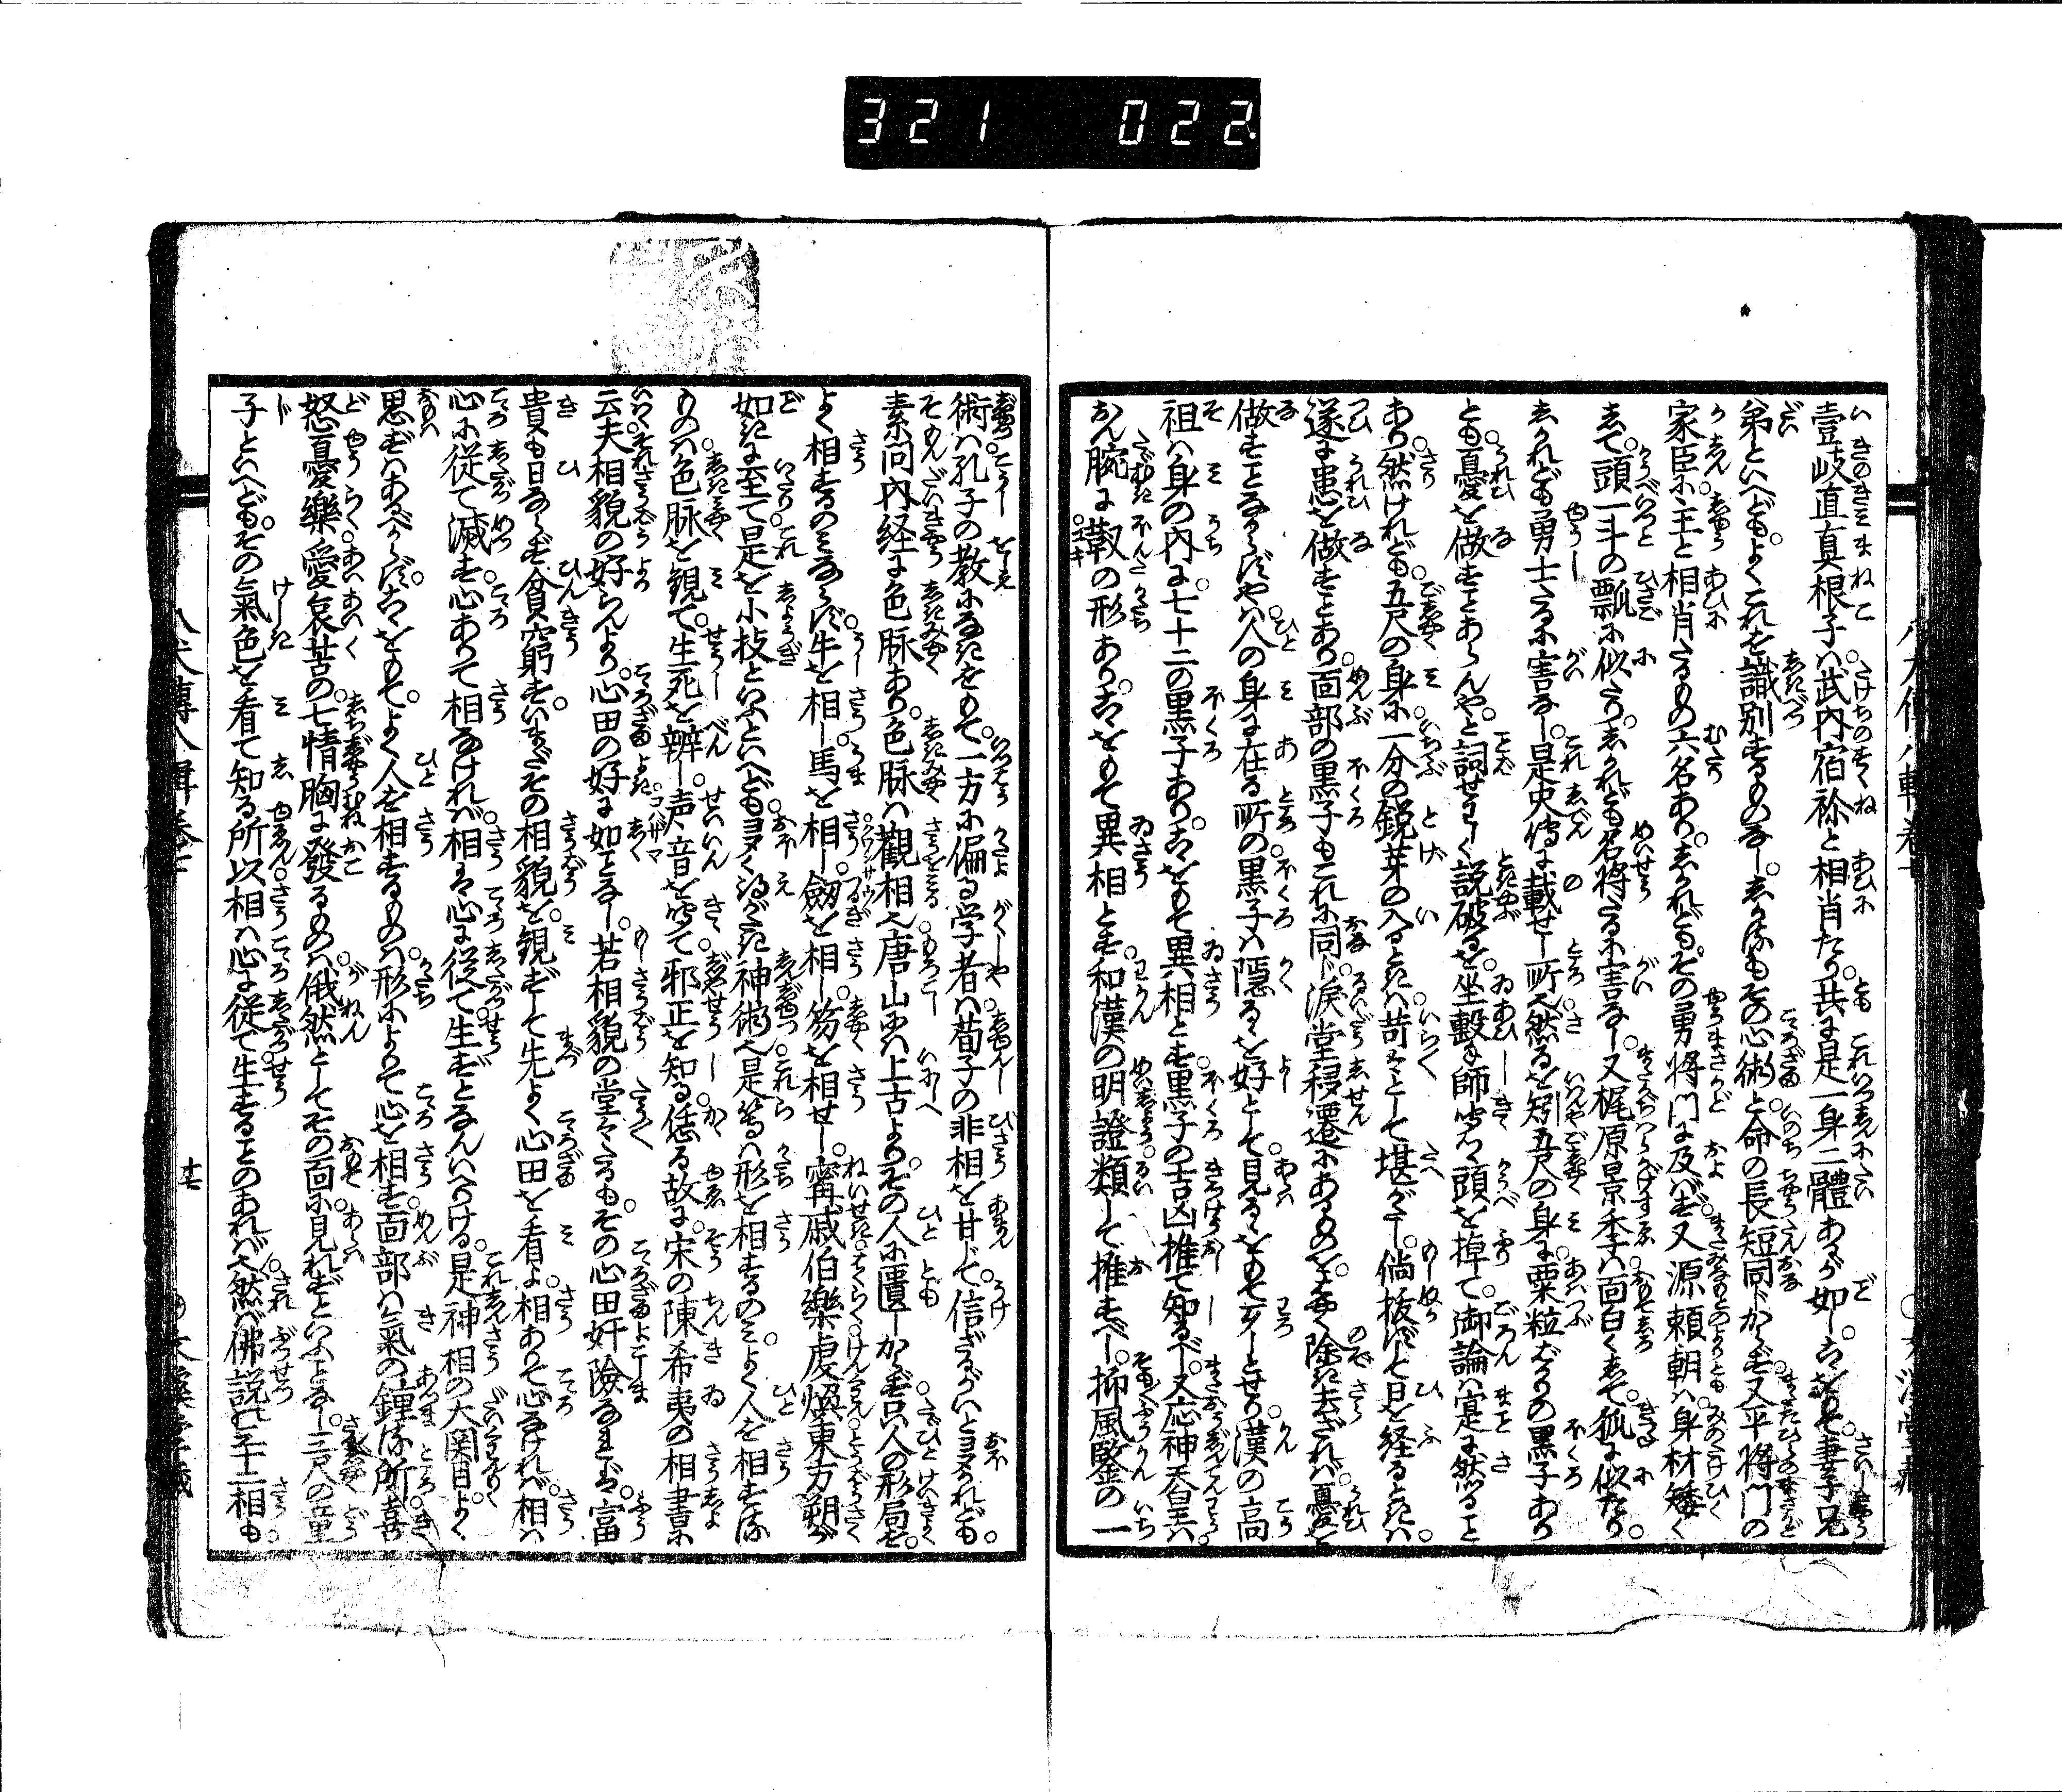 321 022
壹岐直真根子ハ。武内宿祢と相肖たり。共に是一身二體あるが如し。こゝをもて妻子兄
弟といへども。よくこれを識別するものなし。しかれどもその心術と。命の長短同じからず。又平将門の
家臣に。主と相肖たるもの六名あり。しかれども。その勇将門に及ばず。又源頼朝ハ。身材矮く
して。頭一斗の瓢に似たり。しかれども名将たるに害なし。又梶原景季ハ。面白くして。狐に似たり。
しかれども勇士たるに害なし。是史傳に載せし所。然るを矧五尺の身に。粟粒ばかりの黒子あり
とも。憂を做すことあらんや。と詞せはしく説破るを。坐撃師听つゝ頭を掉て。御論ハ寔に然ること
あり。然けれども。五尺の身に一分の鋭芽の入るときハ。苛々として堪がたし。倘抜ずして日を経るときハ。
遂に患を做すことあり。面部の黒子もこれに同じ。涙堂移遷にあるものを。とく除き去ざれバ。憂を
做すことなからずや。人の身に在る所の黒子ハ。隠るゝを好とし。見るゝをもて歹しとせり。漢の高
祖ハ身の内に。七十二の黒子あり。こゝをもて異相とす。黒子の吉凶推て知るべし。又応神天皇ハ。
おん腕に鞆の形あり。こゝをもて異相とす。和漢の明證類して推すべし。抑風鑒の一
術ハ。孔子の教になきをもて。一方に偏る学者ハ。荀子の非相を甘じて。信ざるがいと多かれども。
素問内経に色脉あり。色脉ハ觀相也。唐山にハ上古より。その人に匱しからず。啻人の形局を。
よく相するのみならず。牛を相し。馬を相し。劔を相し。笏を相せし。寗戚伯樂虔煥東方朔が
如きに至て。是を小技といふといへども。多く得がたき神術也。是等ハ形を相するのみ。よく人を相する
ものハ。色脉を観て。生死を辨じ。声音を听て。邪正を知る。恁る故に。宋の陳希夷の相書に
云。夫相貌の好らんより。心田の好に如ことなし。若相貌の堂々たるも。その心田奸險なるときハ。富
貴も日ならず貧窮す。いまだその相貌を。観ずして先よく心田を看よ。相ありて心なけれバ。相ハ
心に従て滅す。心ありて相なけれバ。相ハ心に従て生ずとなんいへりける。是神相の大関目。よく
思ずハあるべからず。こゝをもて。よく人を相するものハ。形によりて心を相す。面部ハ氣の鐘る所。喜
怒憂樂。愛哀苦の。七情胸に發るものハ。俄然としてその面に。見れずといふことなし。三尺の童
子といへども。その氣色を看て知る所以。相ハ心に従て。生することのあれバ也。然バ佛説三十二相も